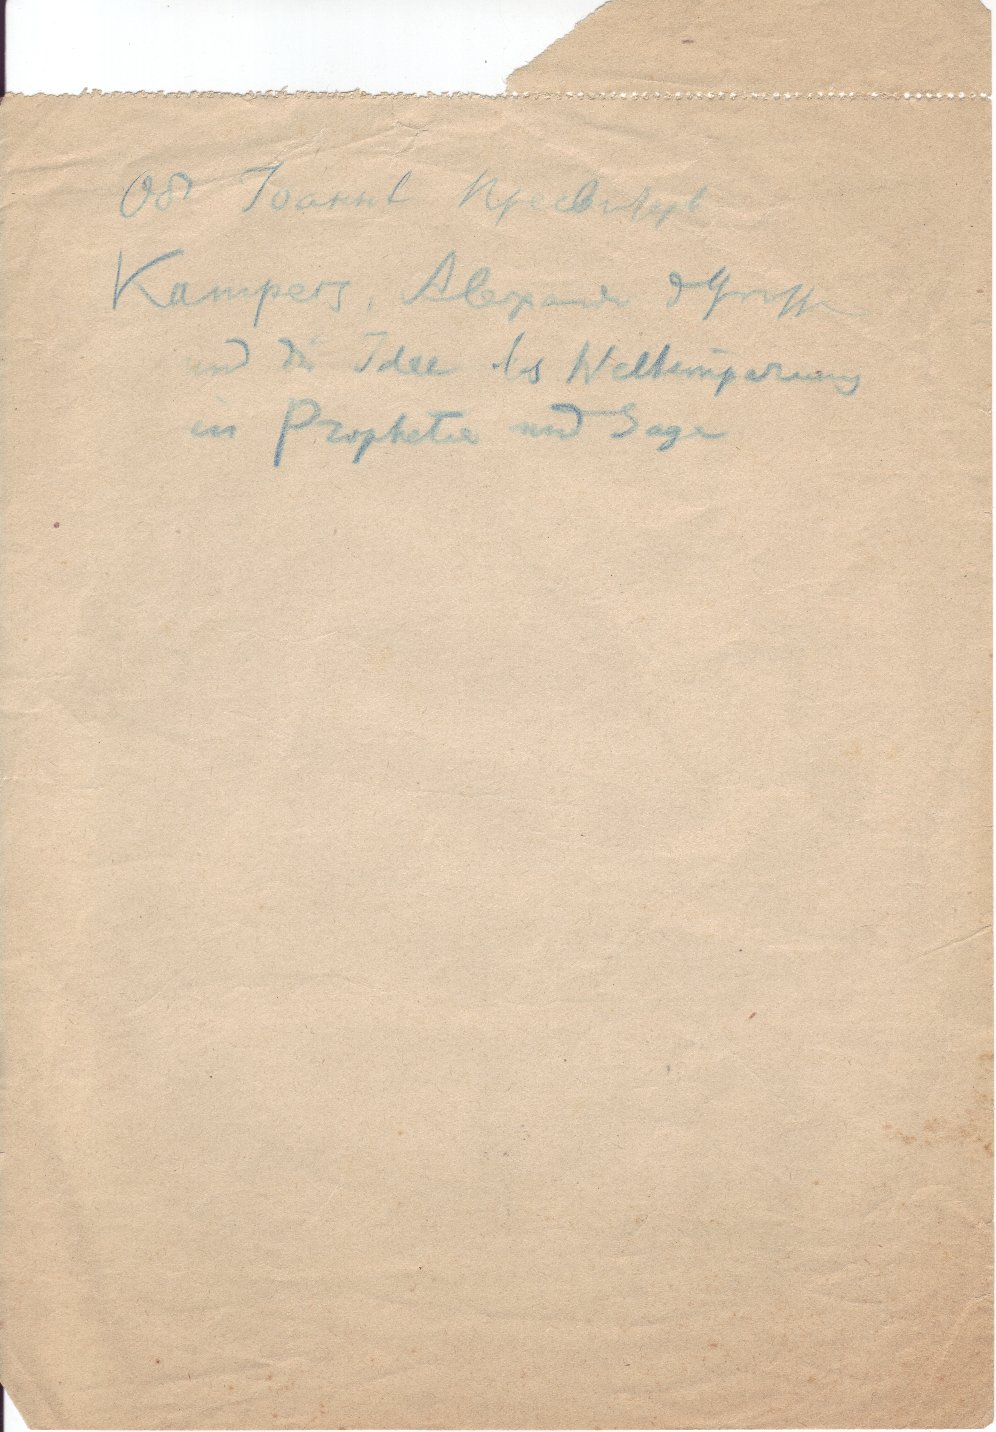 Об Іоаннѣ Пресвитерѣ
Kampers, Alexander d Grosse
und die Idee des Weltimperiums
in Prophetie und Sage